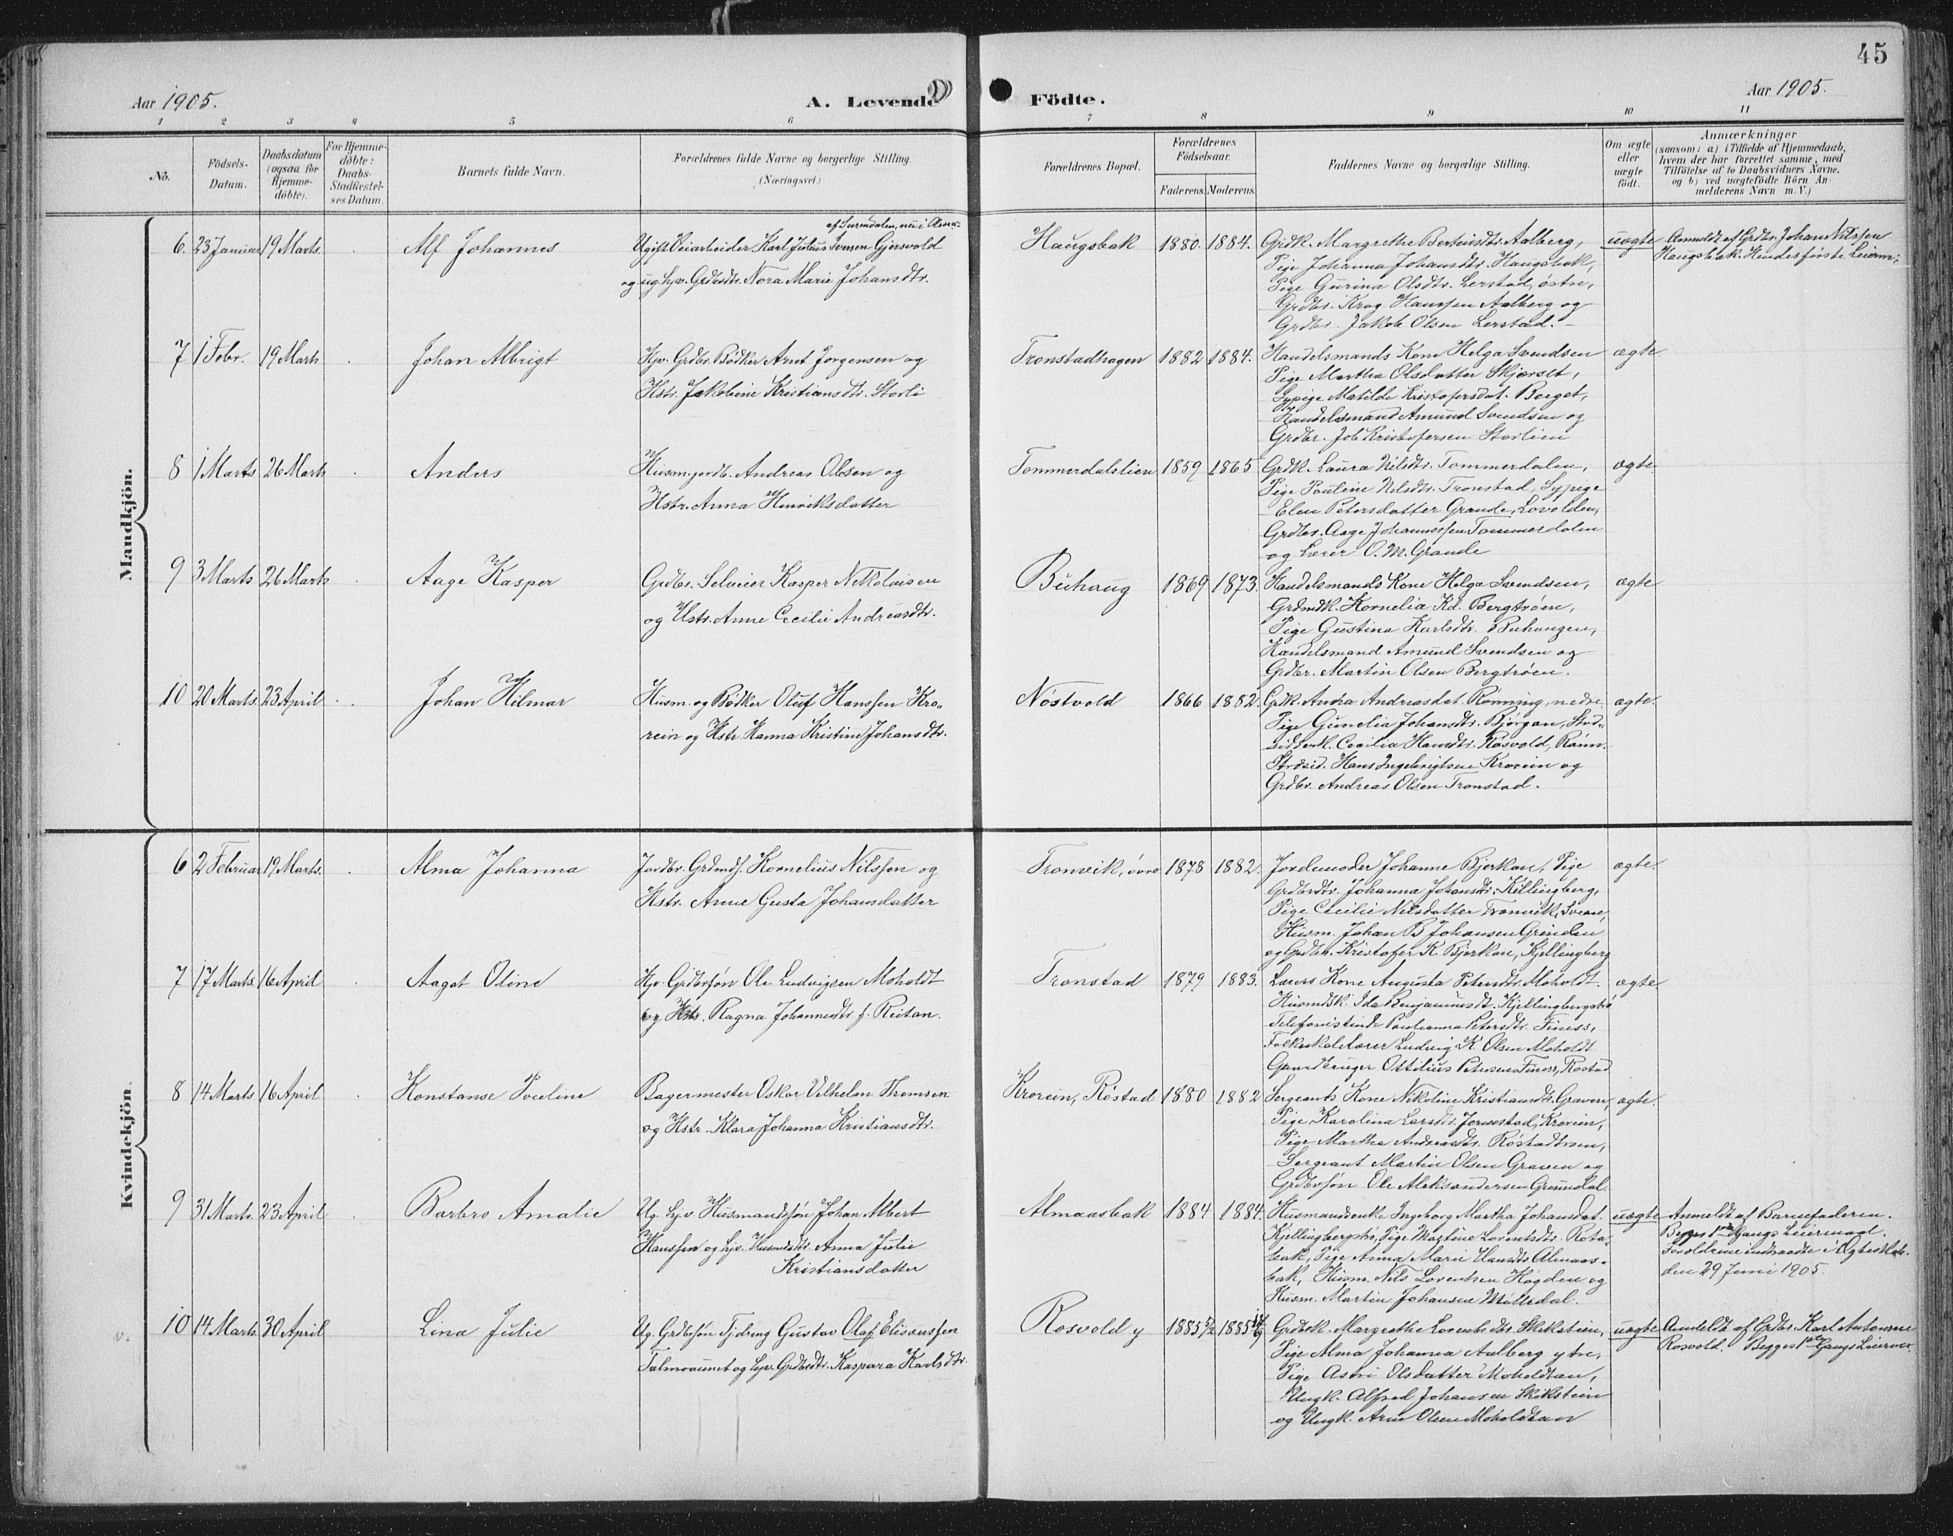 45
Aar 1905.
A. Levende Födte.
Aar 1905.
1 2 3 4 5 6 7 8 9 10 11
No.
Födsels-Datum.
Daabsdatum (ogsaa for Hjemme-döbte).
For Hjemme-döbte: Daabs-Stadfæstel-ses Datum.
Barnets fulde Navn.
Forældrenes fulde Navne og borgerlige Stilling.
(Næringsvei.)
Forældrenes Bopæl.
Forældrenes Födselsaar.
Faderens. Moderens.
Faddernes Navne og borgerlige Stilling.
Om ægte eller uægte födt.
Anmærkninger
(saasom: a) i Tilfælde af Hjemmedaab,
hvem der har forrettet samme, med
Tilföielse af to Daabsvidners Navne.
og b) ved uægtefödte Börn An-
melderens Navn m. V.)
Mandkjön.
6. 23 Januar 19 Marts. Alf Johannes
Ugift Veiarbeider Karl Julius Jensen Gjersvold
og ug. hjv. Grdbrdtr. Nora Marie Johansdtr.
Haugsbak 1880. 1884.
Grdk. Margrethe Berntsdtr. Aalberg,
Pige Johanna Johansdtr. Haugsbak,
Pige Gurina Olsdtr. Lerstad, østre,
Grdbr. Krog Hanssen Aalberg og
Grdbr. Jakob Olsen Lerstad.
uægte
Anmeldt af Grdbr. Johan Nilssen
Haugsbak. Hendes første Leierm:
7 1 Febr. 19 Marts Johan Albrigt
Hjv. Grdbr. Bødker Arnt Jørgensen og
Hstr. Jakobine Kristiansdtr. Storli
Tronstadhagen 1882 1884.
Handelsmands Kone Helga Svendsen
Pige Martha Olsdatter Skjerset,
Sypige Matilde Kristofersdat. Berget,
Handelsmand Amund Svendsen og
Grdbr. Job Kristofersen Storlien
ægte
8 1 Marts 26 Marts Anders
Husm. jordb. Andreas Olsen og
Hstr. Anna Henriksdatter
Tommerdalslien 1859 1865
Grdk. Laura Nilsdtr. Tommerdalen,
Pige Pauline Nilsdtr. Tronstad, Sypige
Elen Petersdatter Grande, Lovelden,
Grdbr. Aage Johannessen Tommerdalen
og Lærer O. M. Grande
ægte
9 3 Marts 26 Marts Aage Kasper
Grdbr. Selveier Kasper Nikolaisen
og Hstr. Anne Cecilie Andreasdtr.
Buhaug 1869 1873.
Handelsmands Kone Helga Svendsen,
Grdmdk. Kornelia Kd. Bergtrøen,
Pige Gustina Karlsdtr. Buhaugen,
Handelsmand Amund Svendsen og
Grdbr. Martin Olsen Bergtrøen.
ægte
10 20 Marts 23 April Johan Hilmar
Husm. og Bødker Oluf Hanssen Kro-
rein og Hstr. Hanna Kristine Johansdtr.
Nøstvold 1866 1882.
Grk. Andrea Andreasdat. Rønning, nedre,
Pige Gunelia Johansdtr. Bjørgan,
Cecilia Hansdtr. Rosvold,
Hans Ingebrigtsen Krorein og
Grdbr. Andreas Olsen Tronstad.
ægte.
Kvindekjön.
6 2 Februar 19 Marts. Alma Johanna
Jordbr. Grdmds. Kornelius Nilssen og
Hstr. Anne Gusta Johansdatter
Tronvik, øvre 1878 1882.
Jordemoder Johanne Bjerkan, Pige
Grdbrdtr. Johanna Johansdtr. Killingberg,
Pige Cecilie Nilsdatter Tronvik,
Husm. Johan B Johansen Grinden
og Grdbr. Kristofer K. Bjerkan, Kjellingberg
ægte.
7 17 Marts. 16 April Aagot Oline
Hjv. Grdbrsøn Ole Ludvigsen Moholdt
og Hstr. Ragna Johannesdtr. f. Reitan.
Tronstad 1879 1883.
Lærers Kone Augusta Petersdtr. Moholdt.
Husmdsk. Ida Benjaminsdt. Kjellingbergstrø
Telefonistinde Paulianna Petersdtr. Finess,
Folkeskolelærer Ludvig K. Olsen Moholdt
Gaardbruger Ottilius Petersen Finess, Rostad
ægte
8 14 Marts 16 April Konstanse Pouline
Bagermester Oskar Vilhelm Thomsen
og Hstr. Klara Johanna Kristiansdtr.
Krorein, Røstad 1880 1882
Sergeants Kone Nikoline Kristiansdtr. Graven,
Pige Karolina Larsdtr. Jernestad, Krorein,
Pige Martha Andreasdtr. Røstadtrøen,
Sergeant Martin Olsen Graven og
Grdbrsøn Ole Aleksandersen Grundal.
ægte.
9 31 Marts. 23 April Barbro Amalie
Ug. hjv. Husmandssøn Johan Albert
Hanssen og hjv. Husmdsdtr. Anna Julie
Kristiansdatter
Almaasbak 1884 1884.
Husmandsenke Ingeborg Martha Johansdat.
Kjellingbergstrø, Pige Martine Lorentsdtr. Rosta-
bak, Pige Anna Marie Hansdtr. Almaas-
bak, Husm. Nils Lorentsen Hogden og
Husm. Martin Johansen Mølledal.
uægte
Anmeldt af Barnefaderen.
Begges 1ste Gangs Leiermaal
Forældrene indtraadte i Ægteskab
den 29 Juni 1905.
10 14 Marts 30 April Lina Julie
Ug. Grdbrsøn Tjdreng Gustav Olaf Eliseussen
Talmoaunet og hjv. Grdbrdtr. Kaspara Karlsdtr.
Rosvold y 1885 1885
Grdbrk. Margrethe Lorentsdtr. Skikstein,
Pige Alma Johansen Aalberg ytre,
Pige Astri Olsdatter Moholdtan,
Ungk. Alfred Johansen Skikstein
og Ungk. Arne Olsen Moholdtan
uægte
Anmeldt af Grdbr. Karl Antonsen
Rosvold. Begges 1ste Gangs Leierm